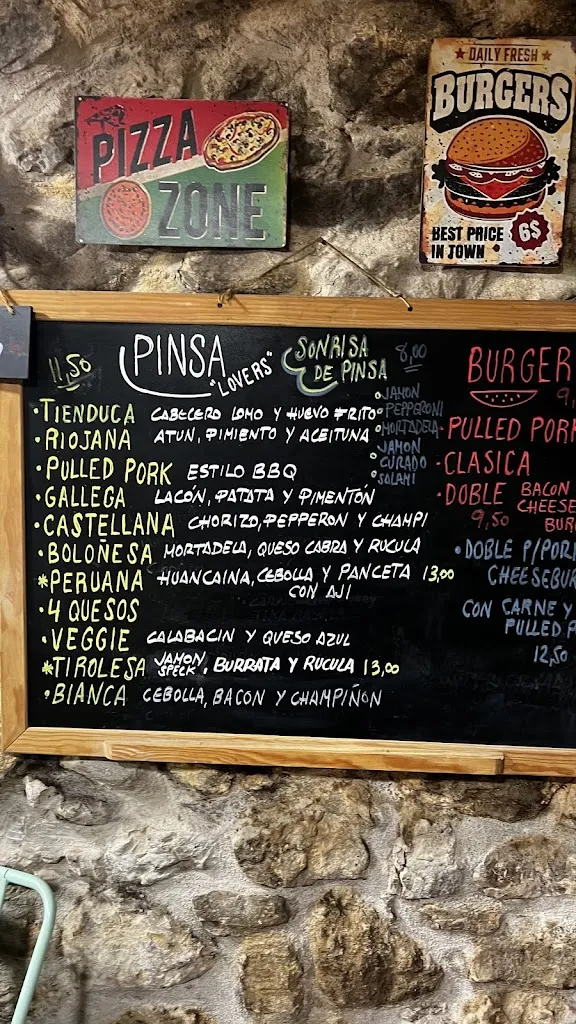 PIZZA
ZONE
DAILY FRESH
BURGERS
BEST PRICE
IN TOWN
6$
11,50
PINSA
"LOVERS"
SONRISA
DE PINSA
8,00
•JAMON
•PEPPERONI
•MORTADELA
•JAMON
CURADO
•SALAMI
•TIENDUCA CABECERO LOMO Y HUEVO FRITO
•RIOJANA ATUN, PIMIENTO Y ACEITUNA
•PULLED PORK ESTILO BBQ
•GALLEGA LACÓN, PATATA Y PIMENTÓN
•CASTELLANA CHORIZO, PEPPERON Y CHAMPI
•BOLOÑESA MORTADELA, QUESO CABRA Y RUCULA
*PERUANA HUANCAINA, CEBOLLA Y PANCETA 13,00
CON AJI
•4 QUESOS
•VEGGIE CALABACIN Y QUESO AZUL
*TIROLESA JAMON SPECK, BURRATA Y RUCULA 13,00
•BIANCA CEBOLLA, BACON Y CHAMPIÑON
BURGER
9,
•PULLED PORK
•CLASICA
•DOBLE BACON
CHEESE
9,50 BUR
•DOBLE P/POR
CHEESEBU
CON CARNE Y
PULLED P
12,50